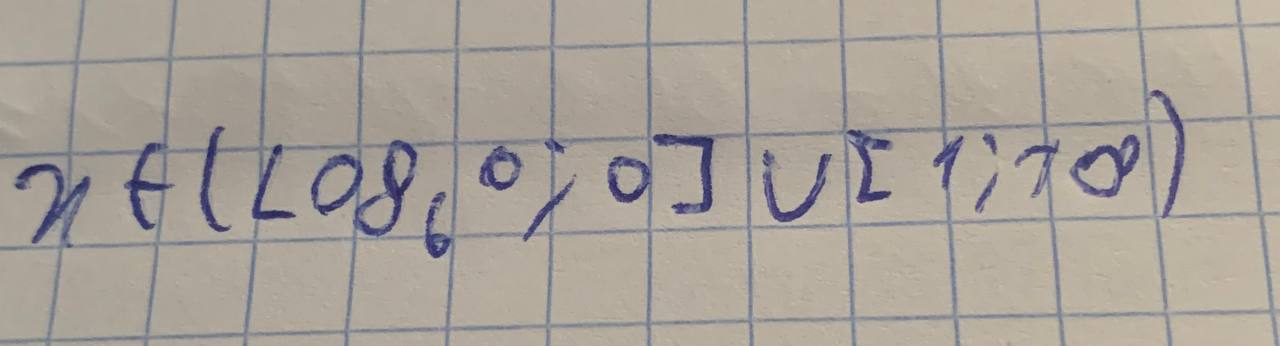 x ∈ (log₆ 0; 0] ∪ [1; +∞)